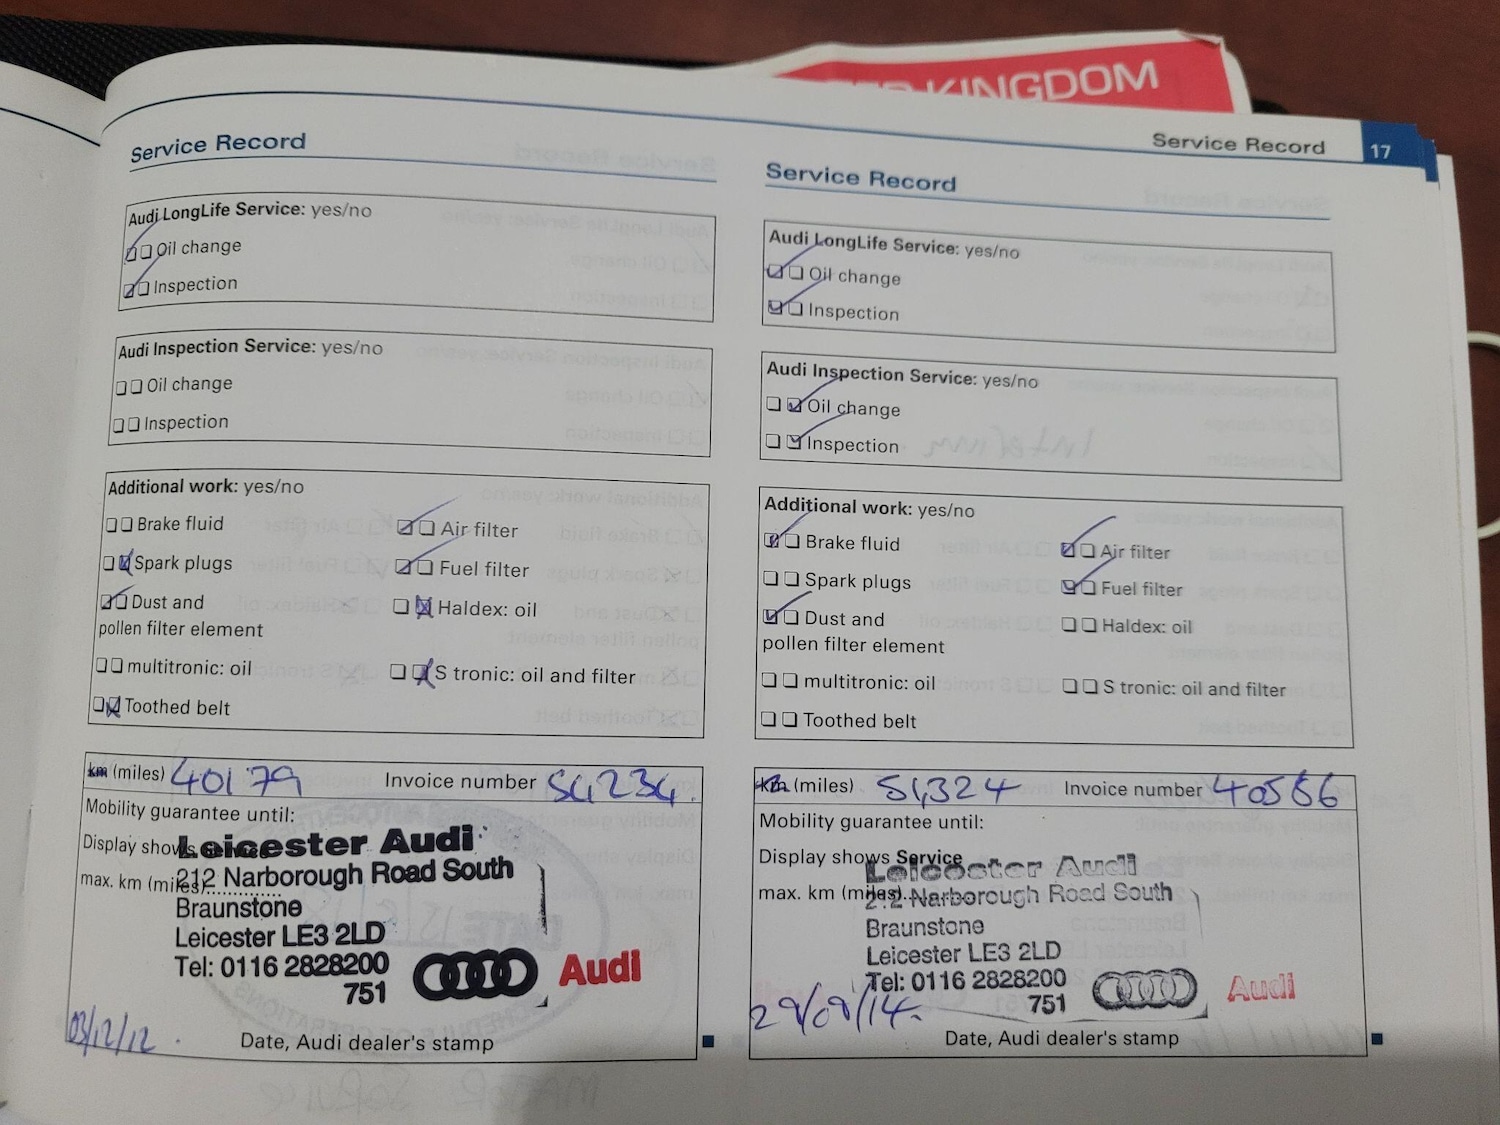 KINGDOM
Service Record 17
Service Record
Audi LongLife Service: yes/no
Oil change
Inspection
Audi Inspection Service: yes/no
Oil change
Inspection
Additional work: yes/no
Brake fluid
Air filter
Spark plugs
Fuel filter
Dust and
pollen filter element
Haldex: oil
multitronic: oil
S tronic: oil and filter
Toothed belt
km (miles) 40179 Invoice number 54234
Mobility guarantee until:
Display shows
max. km (miles)
Leicester Audi
212 Narborough Road South
Braunstone
Leicester LE3 2LD
Tel: 0116 2828200
751
Audi
03/12/12
Date, Audi dealer's stamp
Service Record
Audi LongLife Service: yes/no
Oil change
Inspection
Audi Inspection Service: yes/no
Oil change
Inspection
Additional work: yes/no
Brake fluid
Air filter
Spark plugs
Fuel filter
Dust and
pollen filter element
Haldex: oil
multitronic: oil
S tronic: oil and filter
Toothed belt
km (miles) 51,324 Invoice number
Mobility guarantee until:
Display shows Service
max. km (miles)
Leicester Audi
212 Narborough Road South
Braunstone
Leicester LE3 2LD
Tel: 0116 2828200
751
Audi
Date, Audi dealer's stamp